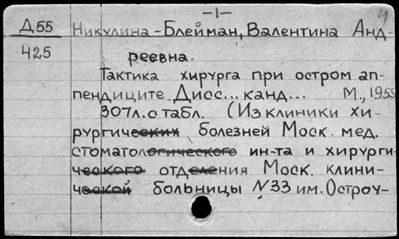 -1-
Д55 Никулина-Блейман, Валентина Анд-
425
реевна.
Тактика хирурга при остром ап-
пендиците. Дисс... канд... М., 1955
307л. с табл. (Из клиники хи-
рургических болезней Моск. мед.
стоматологического ин-та и хирурги-
ческого отделения Моск. клини-
ческой больницы №33 им. Остроу-